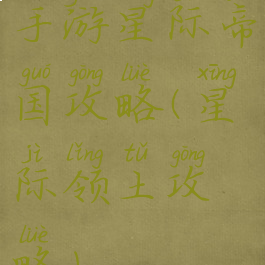 手游星际帝
guó gōng lüè xīng
国攻略(星
jì lǐng tǔ gōng
际领土攻
lüè
略)